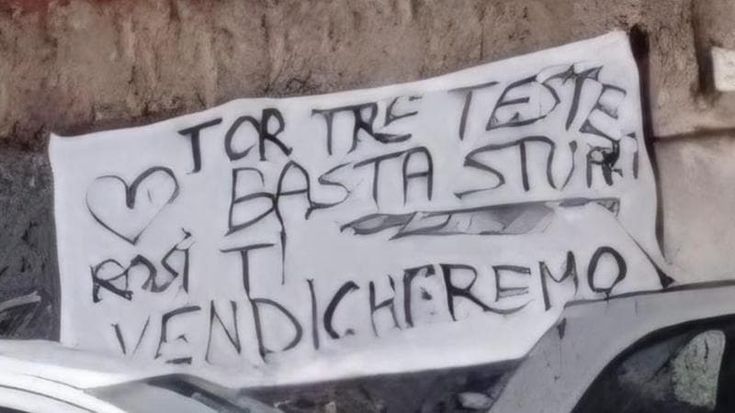 TOR TRE TESTE
BASTA STUPRI
ROSÌ TI
VENDICHEREMO